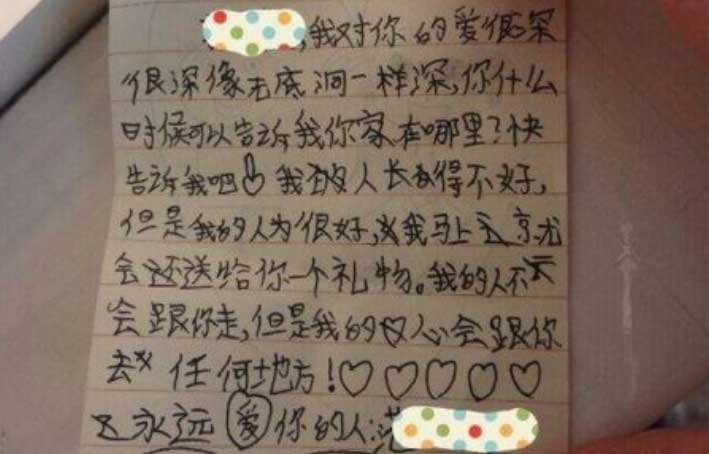 ,我对你的爱很深
很深像无底洞一样深,你什么
时候可以告诉我你家在哪里?快
告诉我吧 我的人长得不好,
但是我的人为很好,我马上就
会还送给你一个礼物。我的人不
会跟你走,但是我的心会跟你
去任何地方!♡♡♡♡♡
永远爱你的人:范